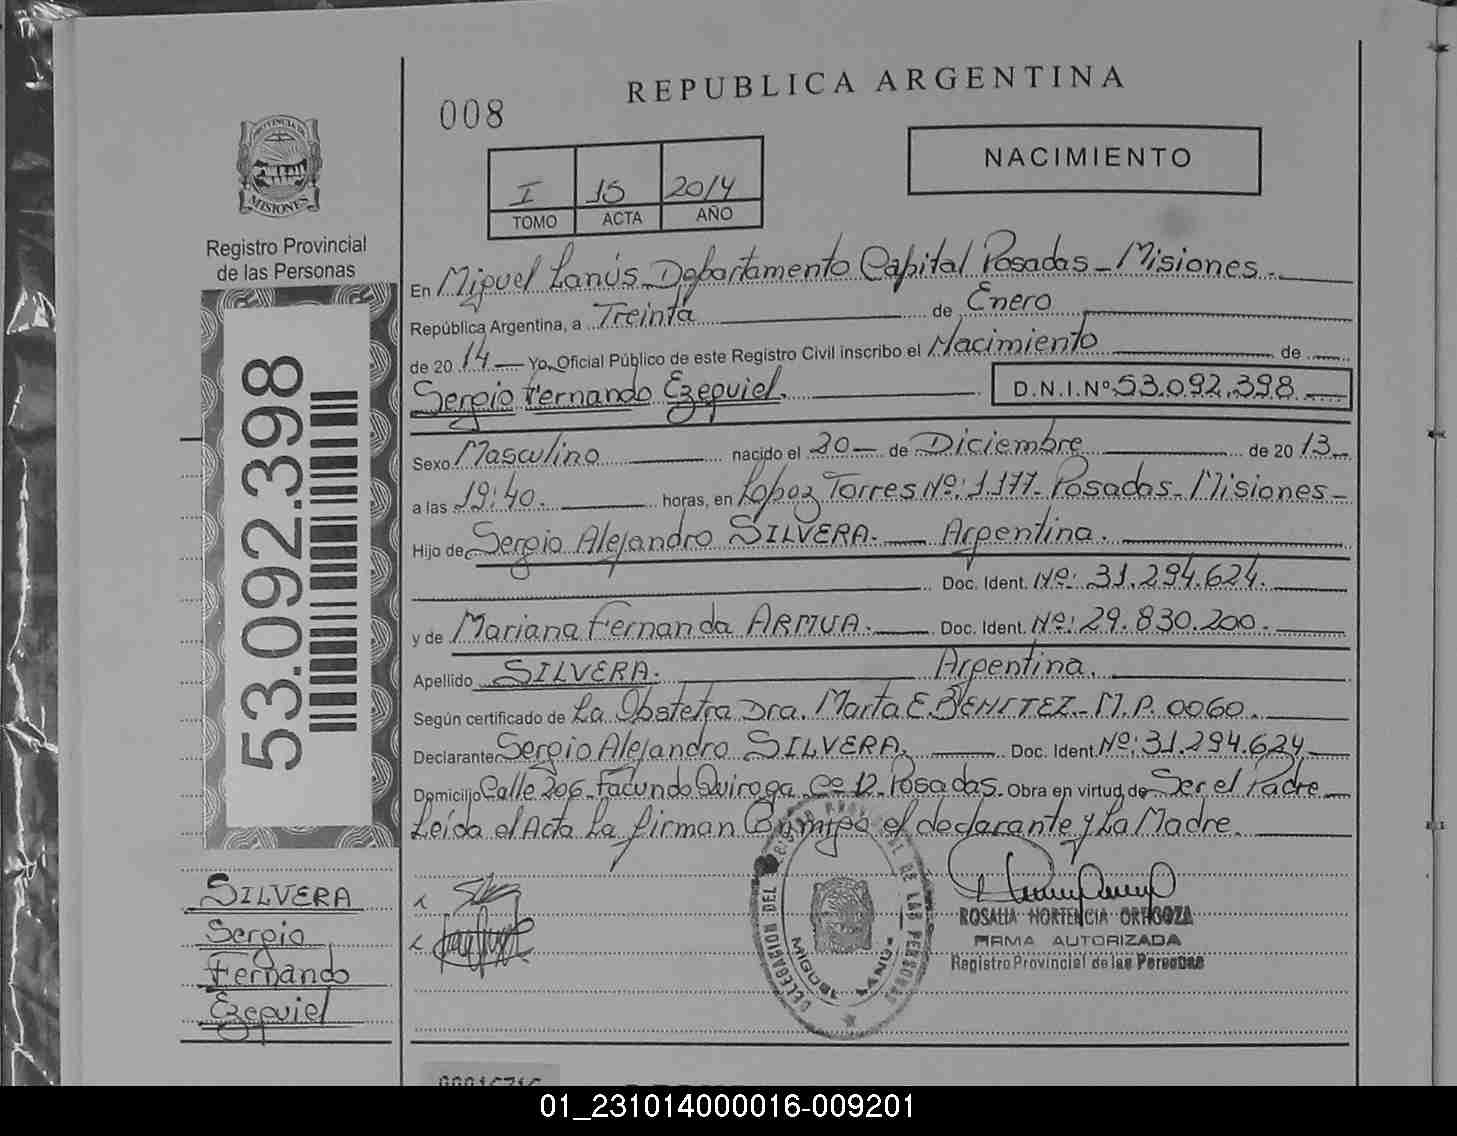 REPUBLICA ARGENTINA
008
NACIMIENTO
I 15 2014
TOMO ACTA AÑO
PROVINCIA DE
MISIONES
Registro Provincial
de las Personas
53.092.398
En Miguel Lanús Departamento Capital Posadas - Misiones.
República Argentina, a Treinta de Enero
de 2014 Yo, Oficial Público de este Registro Civil inscribo el Nacimiento de
Sergio Fernando Ezequiel. D.N.I.Nº 53.092.398
Sexo Masculino nacido el 20 de Diciembre de 2013
a las 19:40. horas, en Lopez Torres Nº: 1.177. Posadas - Misiones -
Hijo de Sergio Alejandro SILVERA. Argentina.
Doc. Ident. Nº: 31.294.624.
y de Mariana Fernanda ARMUA. Doc. Ident. Nº: 29.830.200.
Apellido SILVERA. Argentina.
Según certificado de La Obstetra Dra. Marta E. BENITEZ - M.P. 0060.
Declarante Sergio Alejandro SILVERA. Doc. Ident. Nº: 31.294.624
Domicilio Calle 206 - Facundo Quiroga Cº 12. Posadas. Obra en virtud de Ser el Padre
Leída el Acta La firman Conmigo el declarante y La Madre.
SILVERA
Sergio
Fernando
Ezequiel
DELEGACION DEL REGISTRO PROVINCIAL DE LAS PERSONAS
MIGUEL LANUS
ROSALIA HORTENCIA ORTIGOZA
FIRMA AUTORIZADA
Registro Provincial de las Personas
01_231014000016-009201